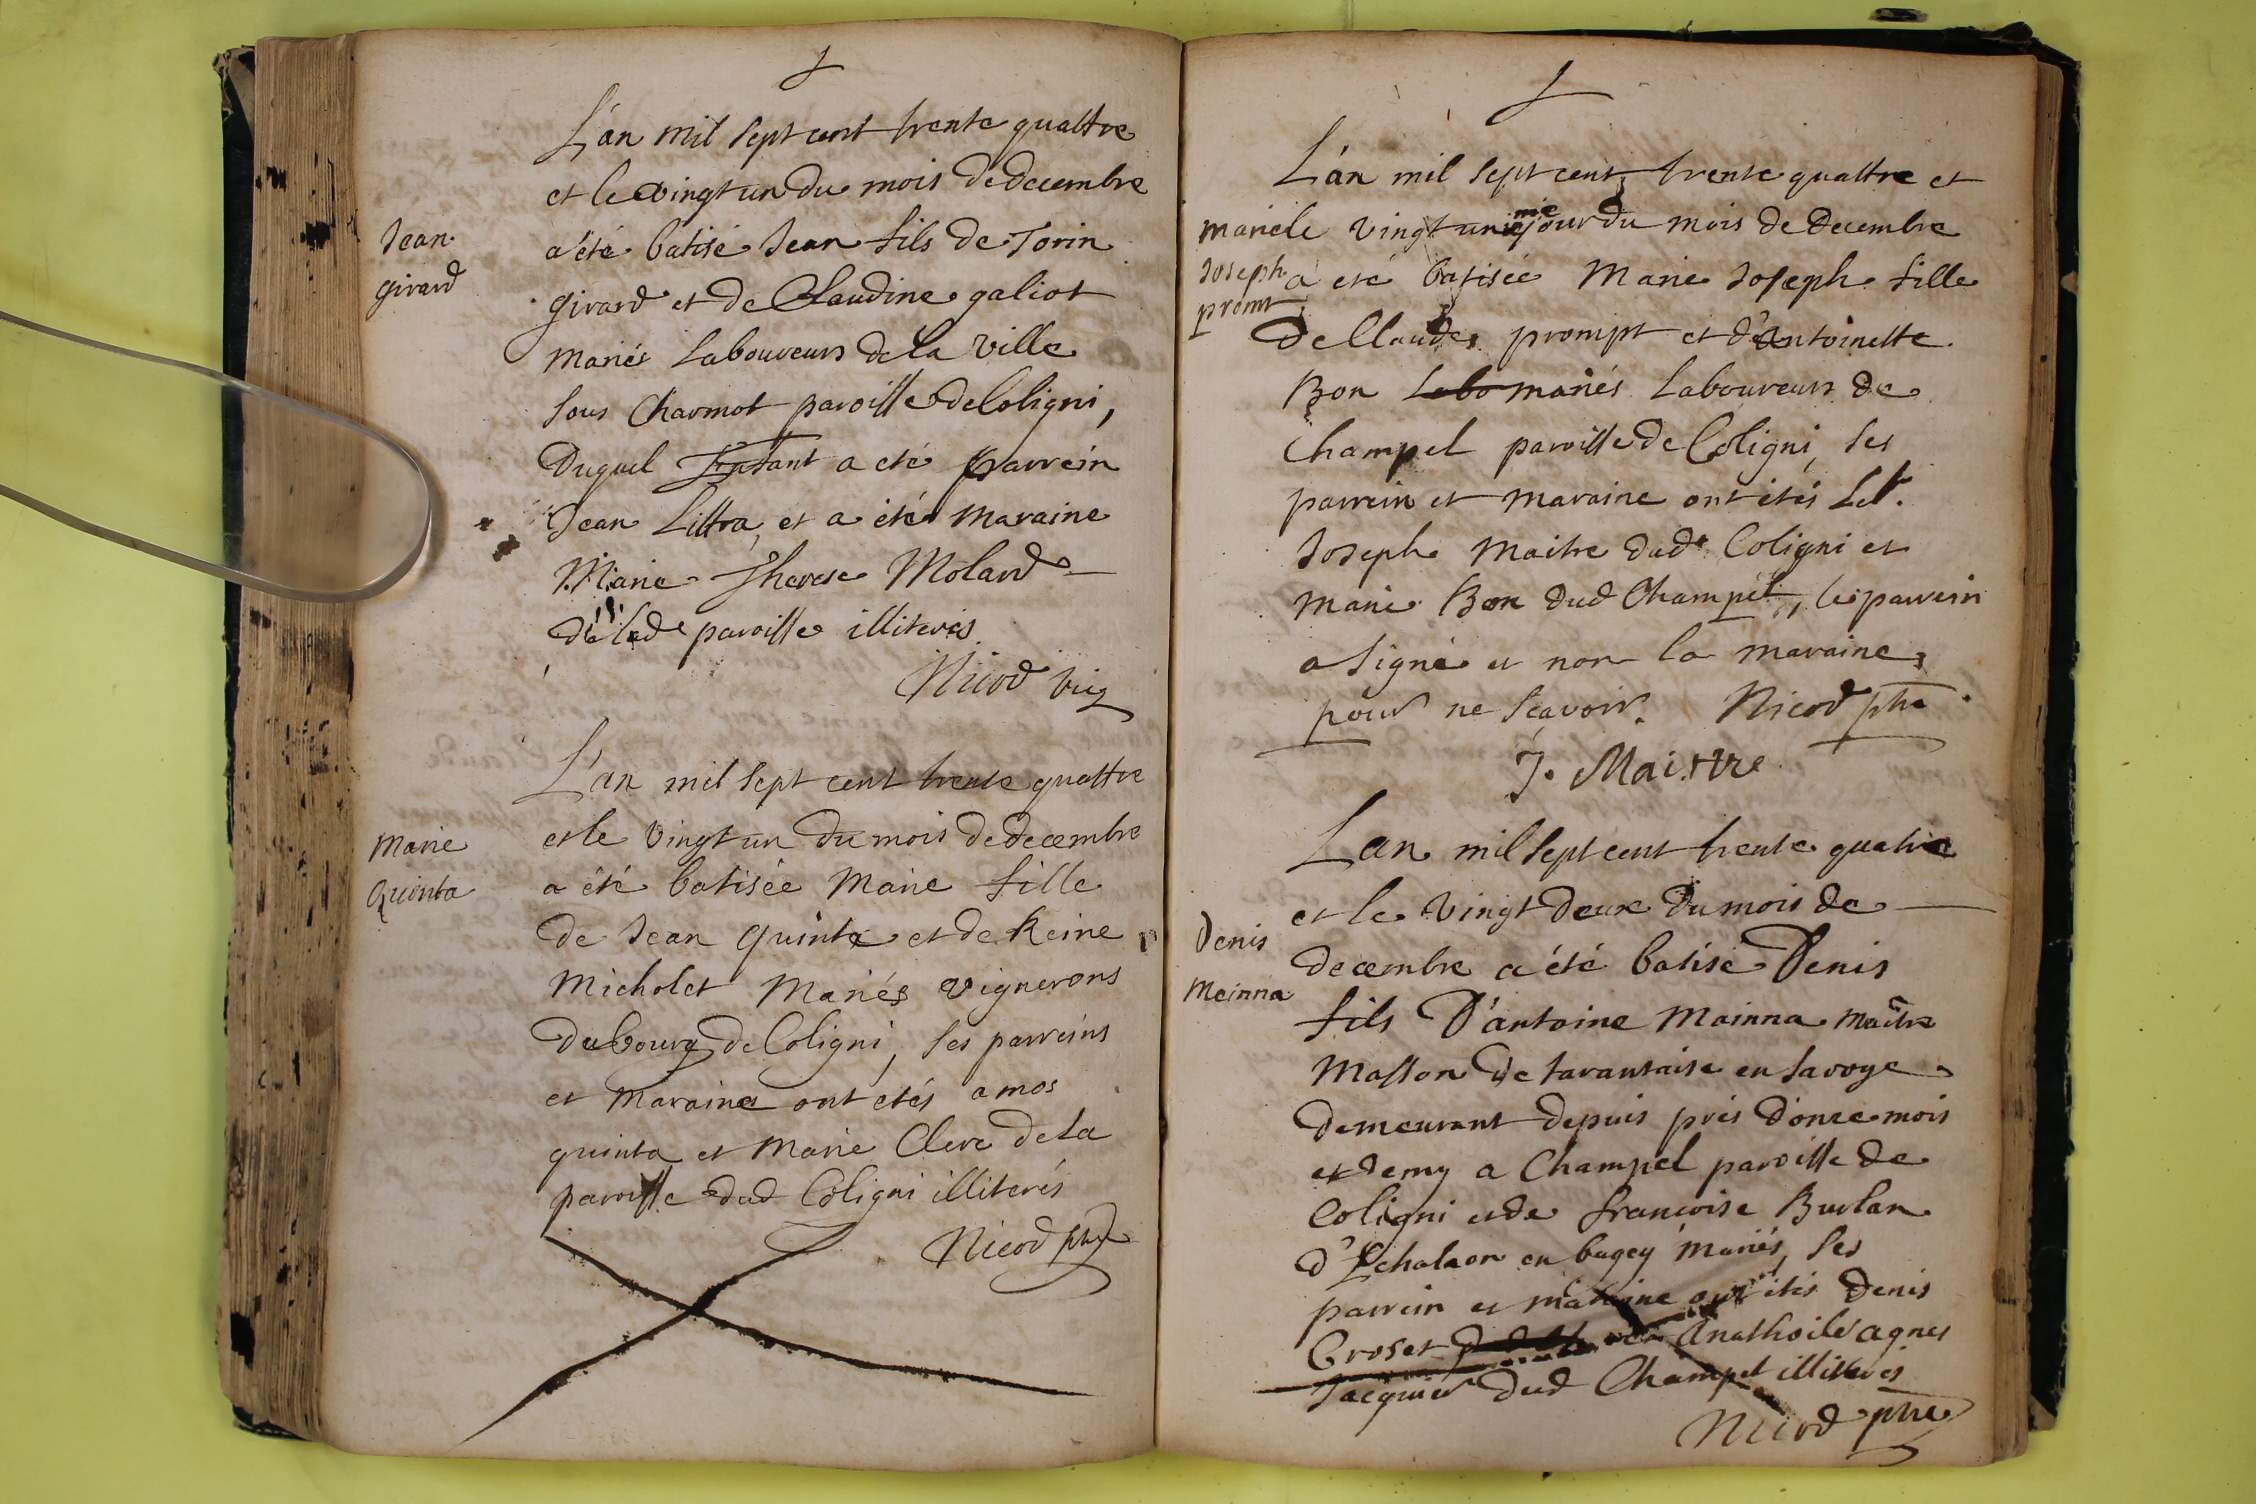 L'an mil sept cent trente quattre
et le vingt un du mois de decembre
Jean
girard
a été batisé Jean fils de Torin
girard et de Claudine galiot
mariés Laboureurs de la ville
sous Charmot paroisse de Coligni,
Duquel Enfant a eté parrein
Jean Littra, et a été maraine
Marie Therese Molard
de lade paroisse illiterés
Nicod vic
Marie
Quinta
L'an mil sept cent trente quattre
et le vingt un du mois de decembre
a été batisée Marie fille
de Jean Quinta et de Reine
Micholet Mariés vignerons
du bourg de Coligni, ses parreins
et maraine ont etés amos
quinta et Marie Clerc de la
paroisse dud Coligni illiterés
Nicod ptre
L'an mil sept cent trente quattre et
le vingt unieme jour du mois de decembre
Marie
Joseph
promt
a eté batisée Marie Joseph fille
de Claude prompt et d'Antoinette
Bon Labo mariés Laboureurs de
Champel paroisse de Coligni, ses
parrein et maraine ont étés
Joseph Maitre dudt Coligni et
marie Bon dud Champel, le parrein
a signé et non la maraine
pour ne sçavoir. Nicod ptre
J. Maistre
Lan mil sept cent trente quatre
et le vingt deux du mois de
Denis
Meinna
decembre a été batisé Denis
fils D'antoine Mainna maître
Masson de tarantaise en Savoye
demeurant depuis prés d'onze mois
et demy a Champel paroisse de
Coligni et de francoise Burlan
d'Echalaon en bugey mariés, ses
parrein et maraine ont étés Denis
Croset Anathoile agnes
Jacquier dud Champel illiterés
Nicod ptre